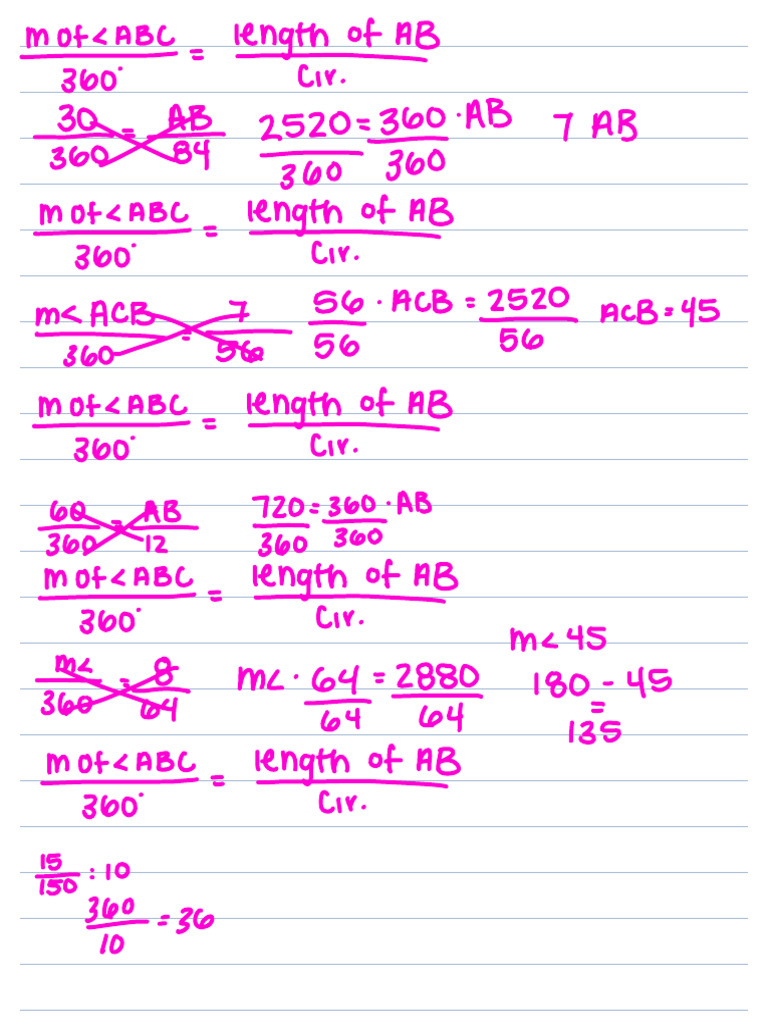 m of <ABC / 360° = length of AB / Cir.
30 / 360 = AB / 84   2520 / 360 = 360 / 360 · AB   7 AB
m of <ABC / 360° = length of AB / Cir.
m< ACB / 360 = 7 / 56   56 / 56 · ACB = 2520 / 56   ACB = 45
m of <ABC / 360° = length of AB / Cir.
60 / 360 = AB / 12   720 / 360 = 360 / 360 · AB
m of <ABC / 360° = length of AB / Cir.
m< / 360 = 8 / 64   m< · 64 / 64 = 2880 / 64
m< 45
180 - 45
=
135
m of <ABC / 360° = length of AB / Cir.
15 / 150 : 10
360 / 10 = 36